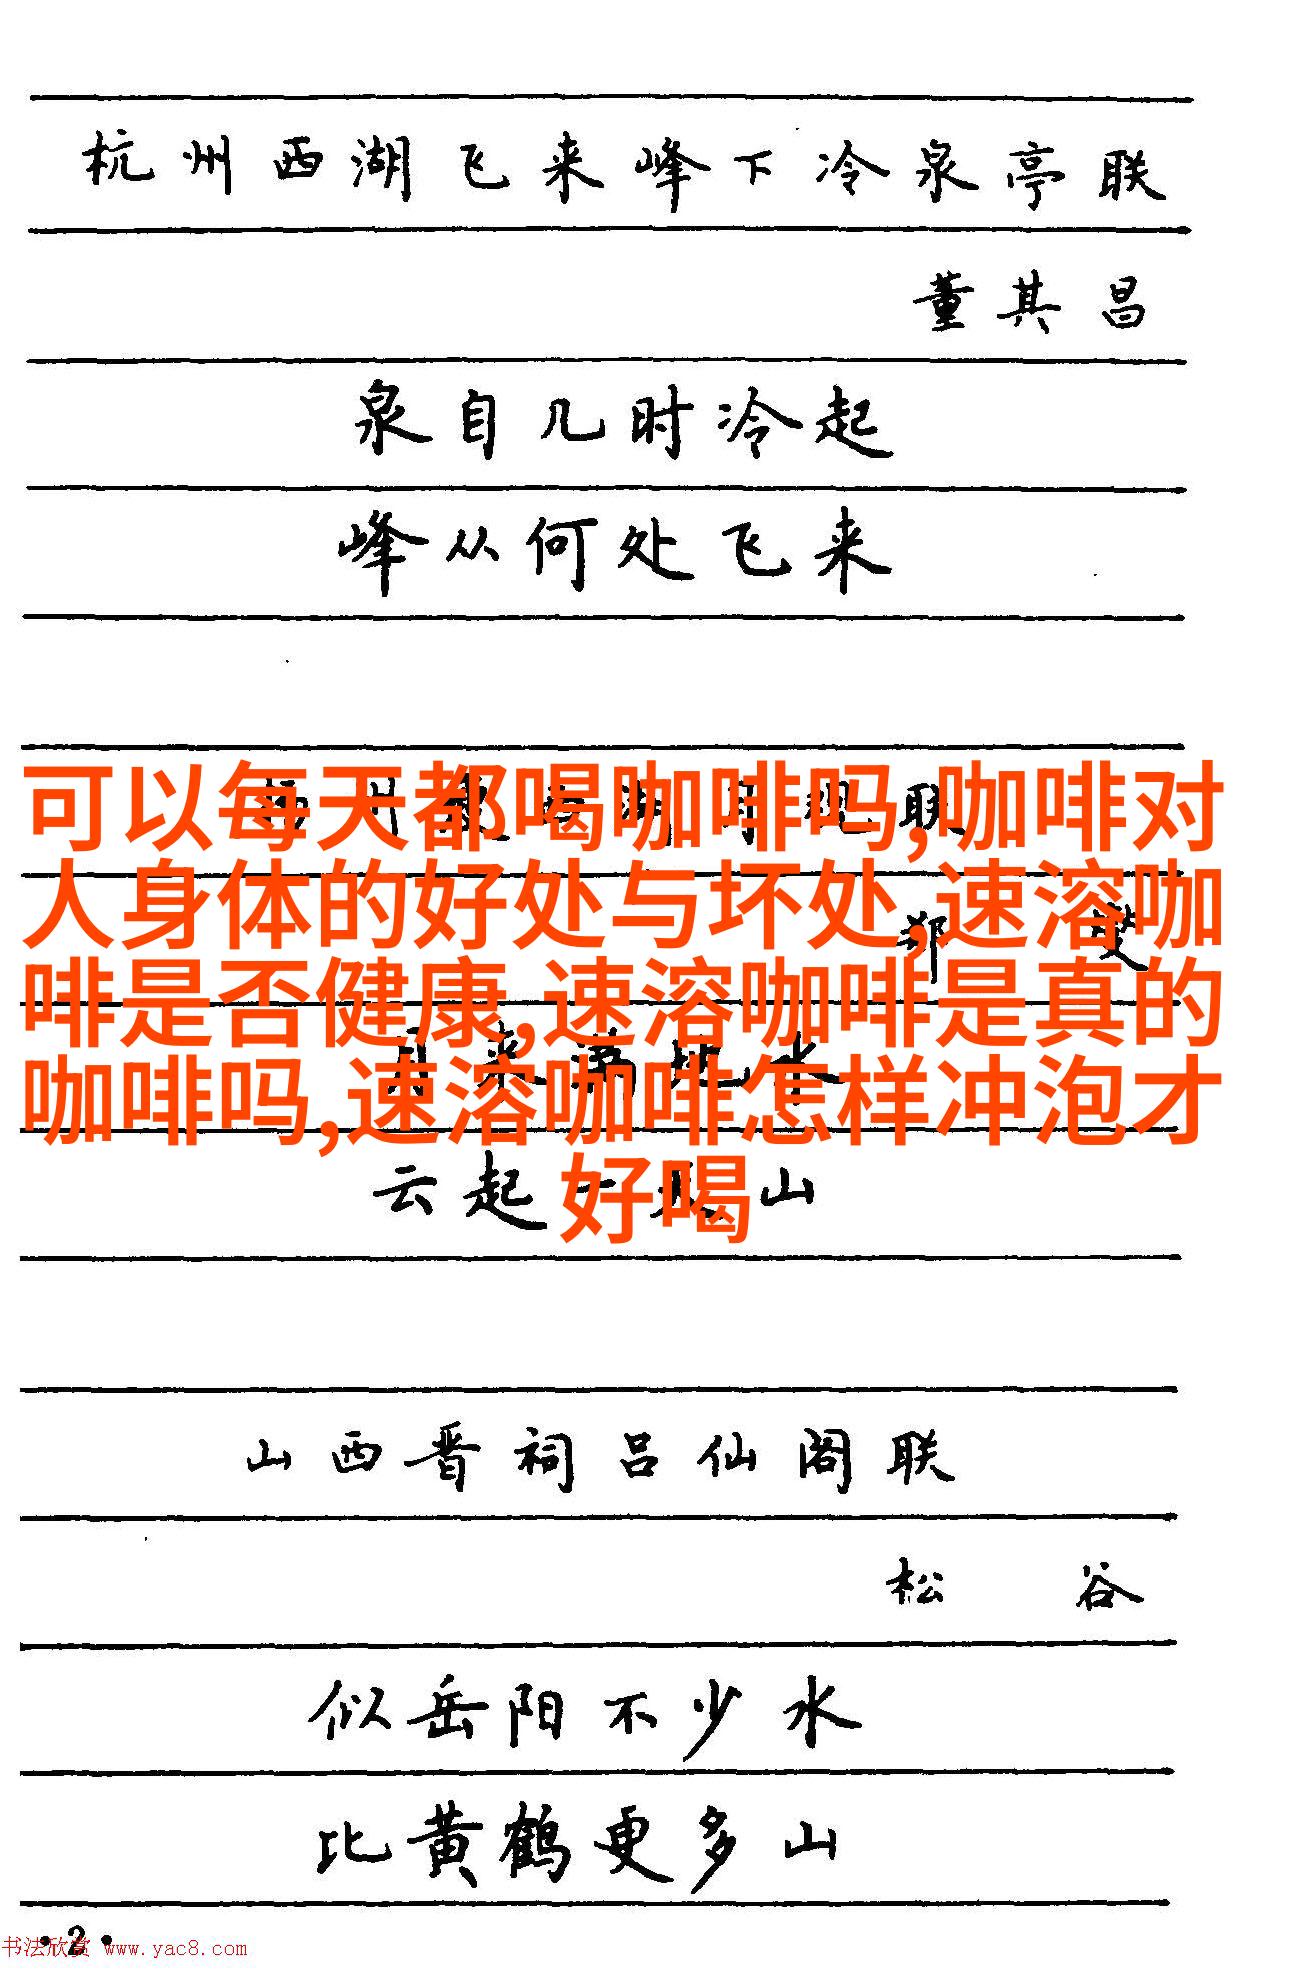 杭州西湖飞来峰下冷泉亭联
董其昌
泉自几时冷起
峰从何处飞来
可以每天都喝咖啡吗,咖啡对
人身体的好处与坏处,速溶咖
啡是否健康,速溶咖啡是真的
咖啡吗,速溶咖啡怎样冲泡才
好喝
州 联
郑 燮
月来满地水
云起一天山
山西晋祠吕仙阁联
松谷
似岳阳不少水
比黄鹤更多山
·2·
书法欣赏 www.yac8.com